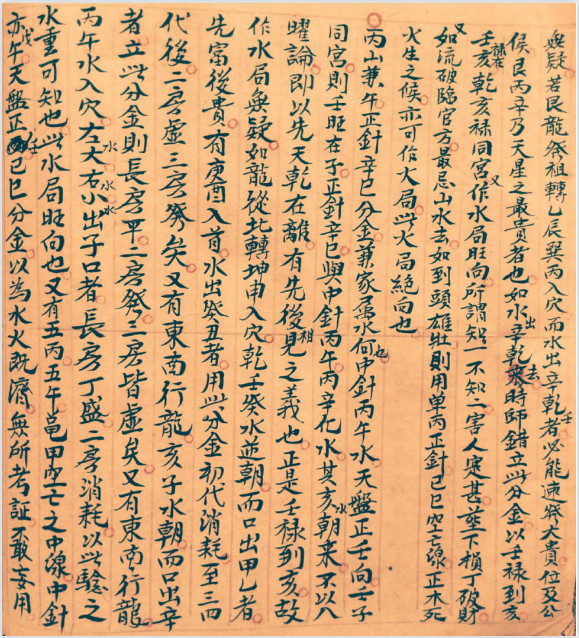 無疑若艮龍發祖轉乙辰巽丙入穴而水出辛乾者必能速發大貴位及公
侯艮丙辛乃天星之最貴者也如水出辛乾來去時師錯立此分金以壬祿到亥
壬祿在亥乾亥祿同宮又作水局旺向所謂知一不知二害人寔甚葬下損丁破財
又如流破臨官方最忌山水去如到頭雄壯則用单丙正針巳巳空亡線正木死
火生之候亦可作火局此火局絕向也
丙山兼午正針辛巳分金兼家属水何也中針丙午水天盤正壬向壬子
同宮則壬旺在子正針辛巳與中針丙午丙辛化水其亥水朝來不以八
曜論即以先天乾在離有先後相見之義也正是壬祿到亥故
作水局無疑如龍從北轉坤申入穴乾壬癸水並朝而口出甲乙者
先富後貴有庚酉入首水出癸丑者用此分金初代消耗至三四
代後二房虛三房發矣又有東南行龍亥子水朝而口出辛
者立此分金則長房平一房發二房皆虛矣又有東南行龍
丙午水入穴左水大右水小水出子口者長房丁盛二房消耗以此驗之
水重可知也此水局旺向也又有五丙五午龜甲空亡之中線中針
戊午天盤正壬己巳分金以為水火既濟無所考証不敢妄用